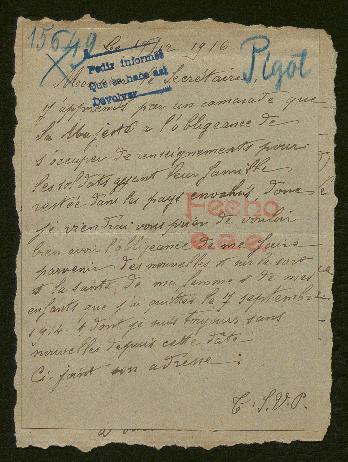 15649 Le 17/12 1916
Pigot
Pedir informes
Que se hace así
Devolver
Secrétaire
J'apprends par un camarade que
Sa Majesté a l'obligeance de
s'occuper de renseignements pour
les soldats ayant leur famille
restée dans les pays envahis, donc
je viendrai vous prier de vouloir
bien avoir l'obligeance de me faire
parvenir des nouvelles sur le sort
et la santé de ma femme & de mes
enfants que j'ai quittés le 7 septembre
1914 & dont je suis toujours sans
nouvelles depuis cette date
Ci-joint son adresse :
T.S.V.P.
Fecho